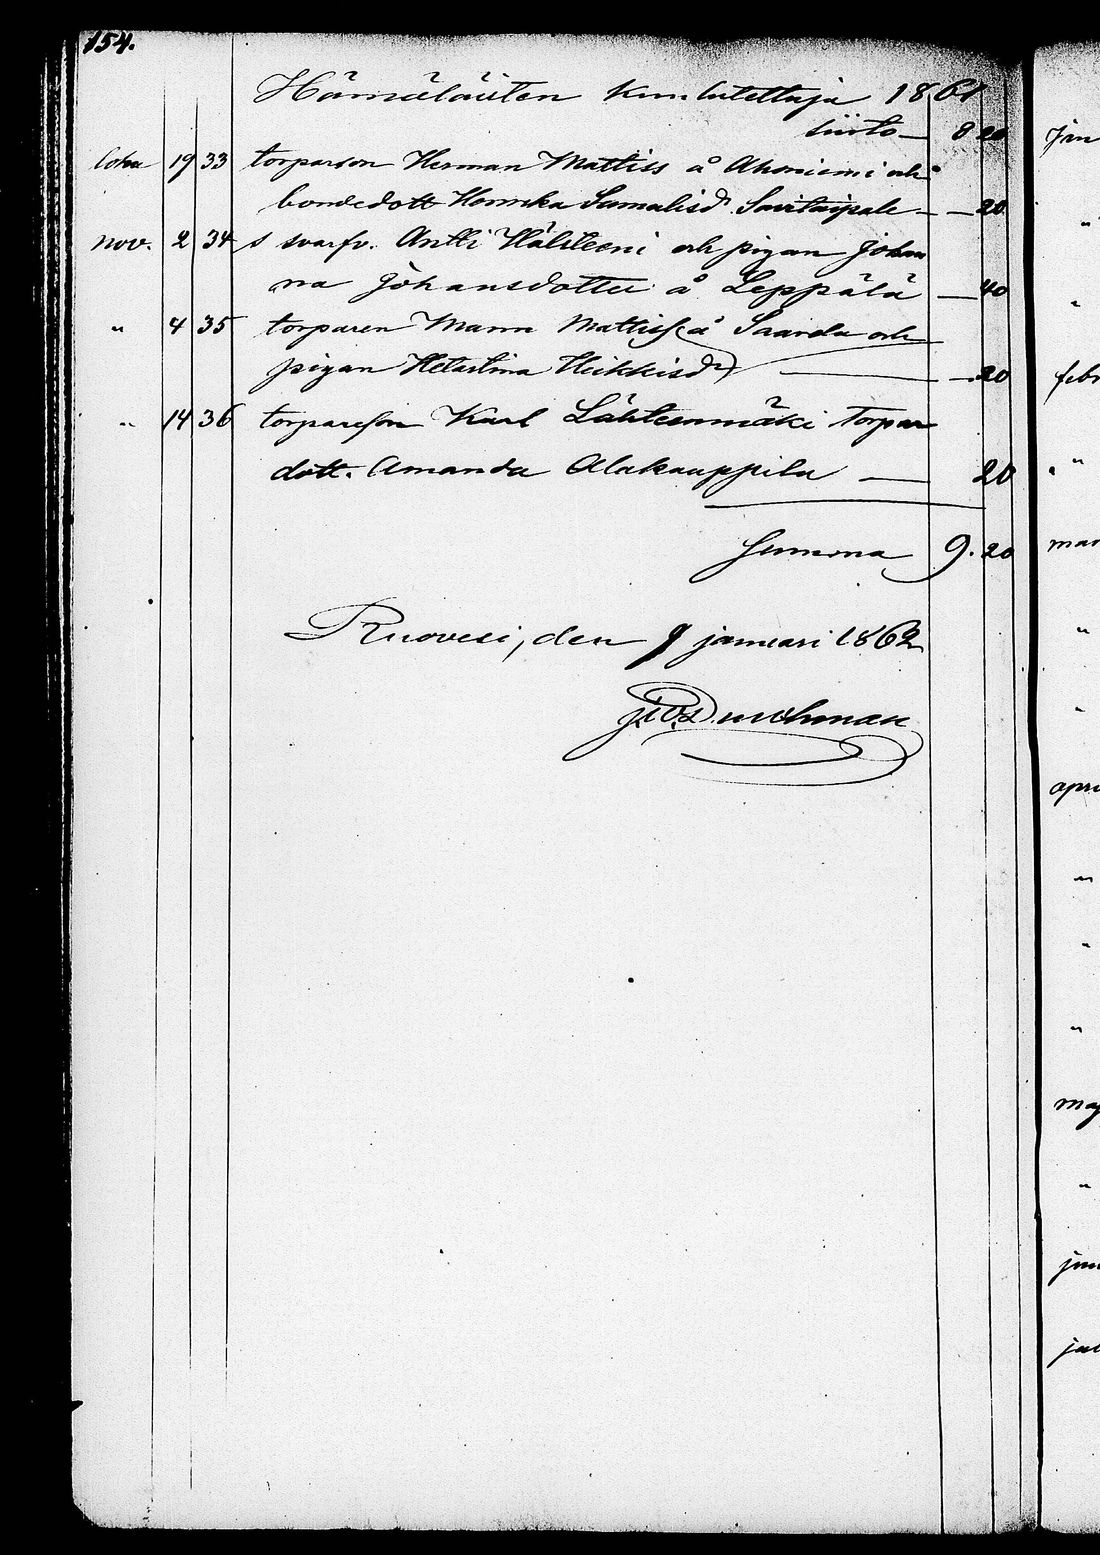 154.
Hämäläisten kuulutettuja 1861
siirto — 8 20
loka 19 33 torparson Herman Mattiss å Ahoniemi och
bondedott Henrika Samulisd. Savitaipale — 20
nov. 2 34 s svarfv. Antti och pigan Johan
na Johansdotter å Leppälä — 40
" 4 35 torparen Mann Mattiss å och
pigan Hetastina Heikkisd — 20
" 14 36 torpareson Karl Lähteenmäki torpar
dott. Amanda Alakauppila — 20
Summa 9. 20
Ruovesi, den 9 januari 1862
jan
"
"
febr
"
mar
"
"
apri
"
"
"
maj
"
jun
jul